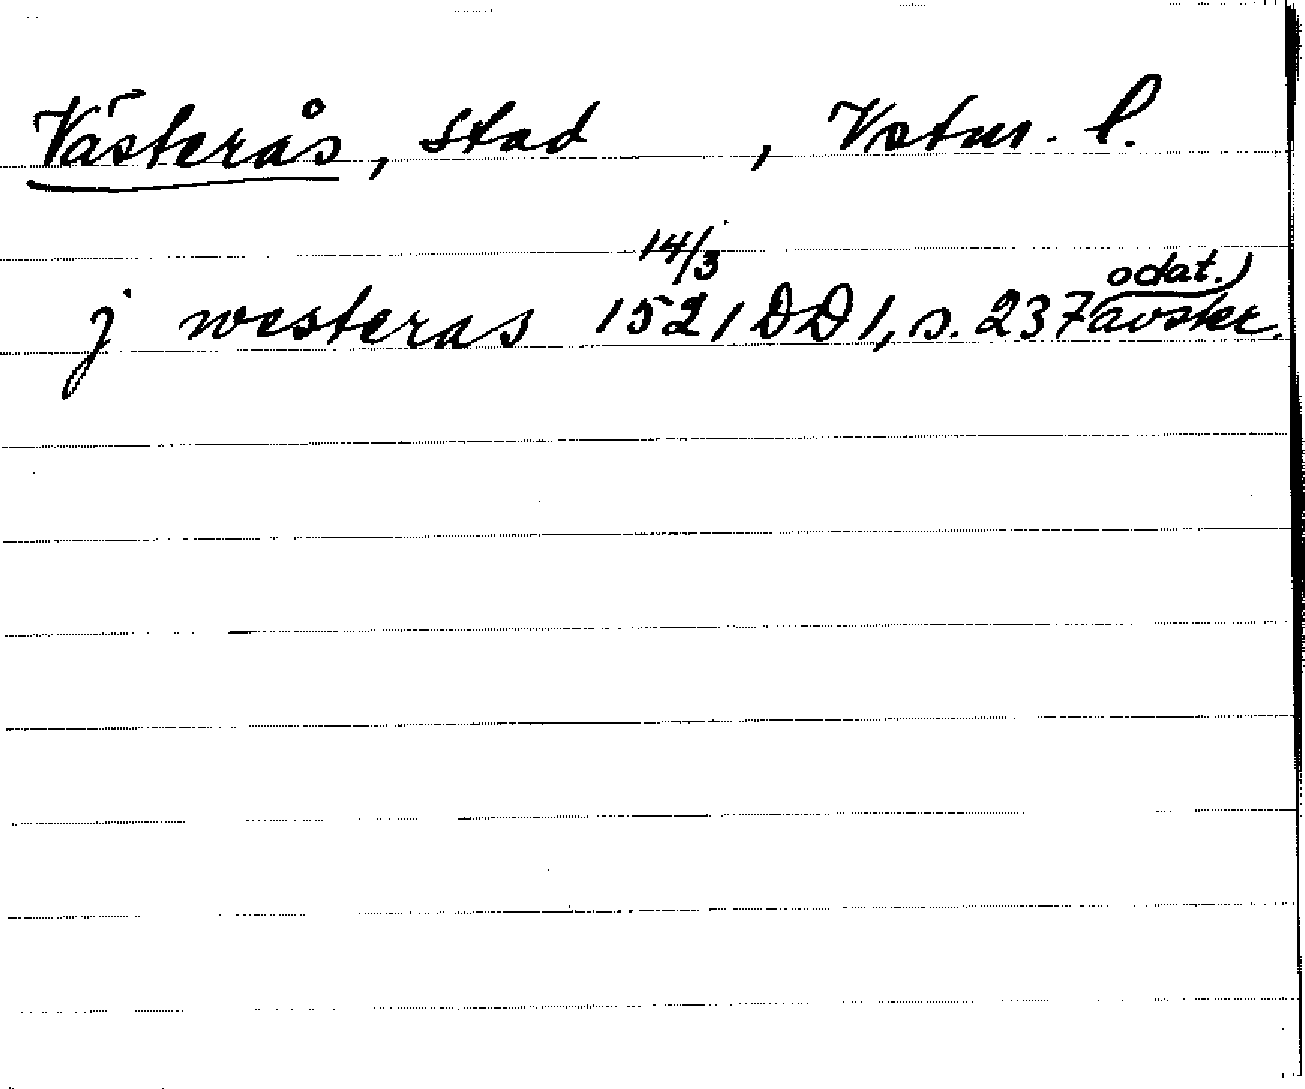 Västerås, stad , Vstm. l.
j westeras 14/3 1521 DD 1, s. 237 odat.) avskr.